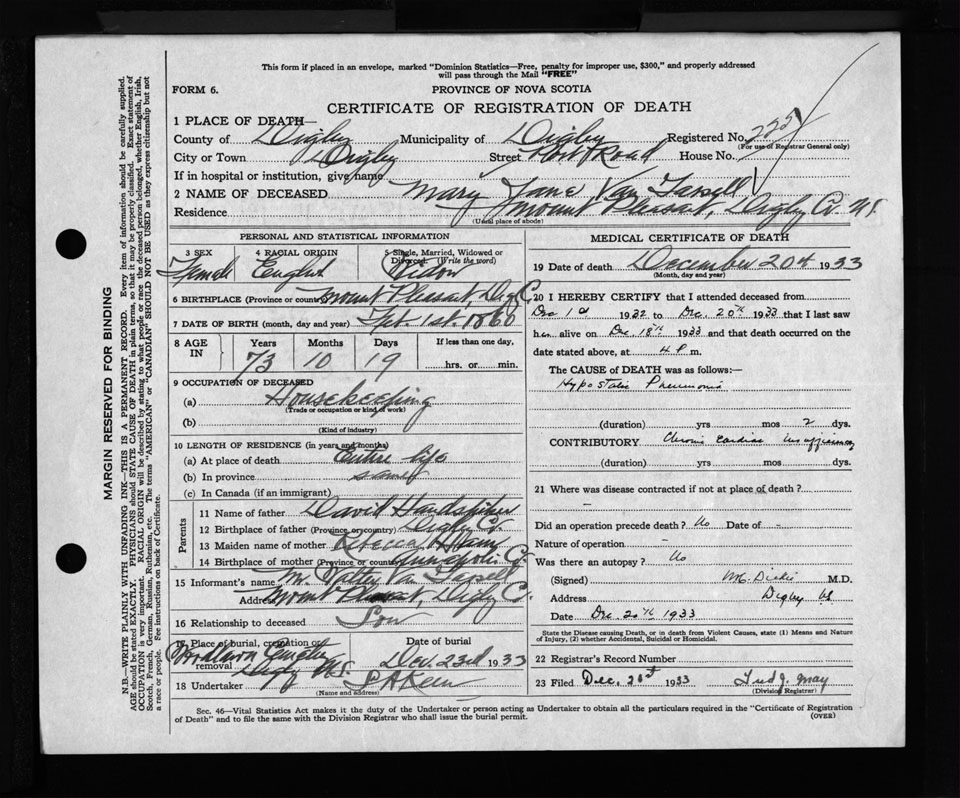 This form if placed in an envelope, marked "Dominion Statistics—Free, penalty for improper use, $300," and properly addressed
will pass through the Mail "FREE"
FORM 6.
PROVINCE OF NOVA SCOTIA
CERTIFICATE OF REGISTRATION OF DEATH
1 PLACE OF DEATH—
County of Digby Municipality of Digby Registered No.
(For use of Registrar General only)
City or Town Digby Street Road House No.
If in hospital or institution, give name
2 NAME OF DECEASED Mary Jane Van Tassell
Residence Mount Pleasant, Digby Co. N.S.
(Usual place of abode)
PERSONAL AND STATISTICAL INFORMATION
3 SEX 4 RACIAL ORIGIN 5 Single, Married, Widowed or
Divorced. (Write the word)
Female English Widow
6 BIRTHPLACE (Province or country) Mount Pleasant, Dig Co
7 DATE OF BIRTH (month, day and year) 1st. 1860
8 AGE IN
Years Months Days If less than one day,
73 10 19 hrs. or min.
9 OCCUPATION OF DECEASED
(a) Housekeeping
(Trade or occupation or kind of work)
(b)
(Kind of industry)
10 LENGTH OF RESIDENCE (in years and months)
(a) At place of death Entire life
(b) In province same
(c) In Canada (if an immigrant)
Parents
11 Name of father David Handspiker
12 Birthplace of father (Province or country) Digby Co.
13 Maiden name of mother Rebecca
14 Birthplace of mother (Province or country) Annapolis Co.
15 Informant's name Mr. Walter Van Tassell
Address Mount Pleasant, Digby Co.
16 Relationship to deceased Son
17 Place of burial, cremation or removal Date of burial
Digby N.S. Dec. 23rd 1933
18 Undertaker
(Name and address)
MEDICAL CERTIFICATE OF DEATH
19 Date of death December 20th 1933
(Month, day and year)
20 I HEREBY CERTIFY that I attended deceased from
Dec 1st 1932 to Dec. 20th 1933 that I last saw
her alive on Dec 18th 1933 and that death occurred on the
date stated above, at 4 P. m.
The CAUSE of DEATH was as follows:—
Hypostatic Pneumonia
(duration) yrs mos 2 dys.
CONTRIBUTORY Chronic Cardiac Insufficiency
(duration) yrs mos dys.
21 Where was disease contracted if not at place of death?
Did an operation precede death? No Date of -
Nature of operation -
Was there an autopsy? No
(Signed) M.D.
Address Digby NS
Date Dec 20th 1933
State the Disease causing Death, or in death from Violent Causes, state (1) Means and Nature
of Injury, (2) whether Accidental, Suicidal or Homicidal.
22 Registrar's Record Number
23 Filed Dec. 1933 May
(Division Registrar)
Sec. 46—Vital Statistics Act makes it the duty of the Undertaker or person acting as Undertaker to obtain all the particulars required in the "Certificate of Registration
of Death" and to file the same with the Division Registrar who shall issue the burial permit.
(OVER)
MARGIN RESERVED FOR BINDING
N.B—WRITE PLAINLY WITH UNFADING INK—THIS IS A PERMANENT RECORD. Every item of information should be carefully supplied.
AGE should be stated EXACTLY. PHYSICIANS should STATE CAUSE OF DEATH in plain terms, so that it may be properly classified. Exact statement of
OCCUPATION is very important. RACIAL ORIGIN will be described by stating to what people or race the deceased person belonged, whether English, Irish,
Scotch, French, German, Russian, Ruthenian, etc. The terms "AMERICAN" or "CANADIAN" SHOULD NOT BE USED as they express citizenship but not
a race or people. See instructions on back of Certificate.